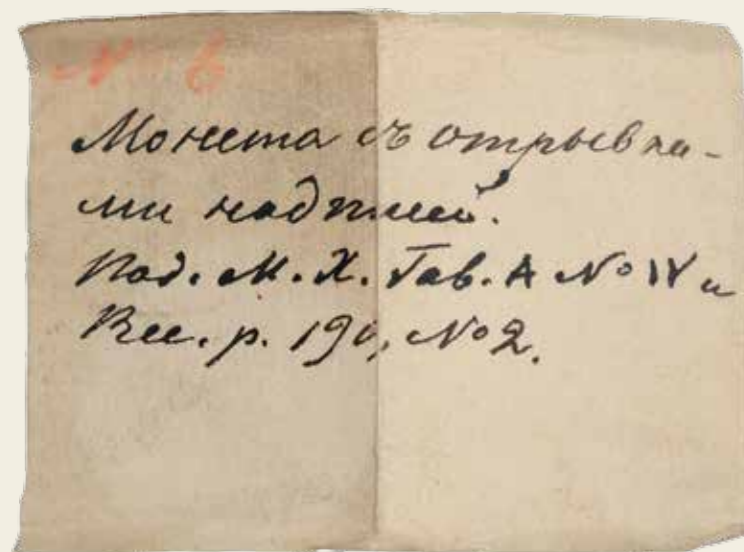 № 6
Монета съ отрывка-
ми надписей.
Под. М. Х. Таб. А № IV и
Rec. p. 190, № 2.